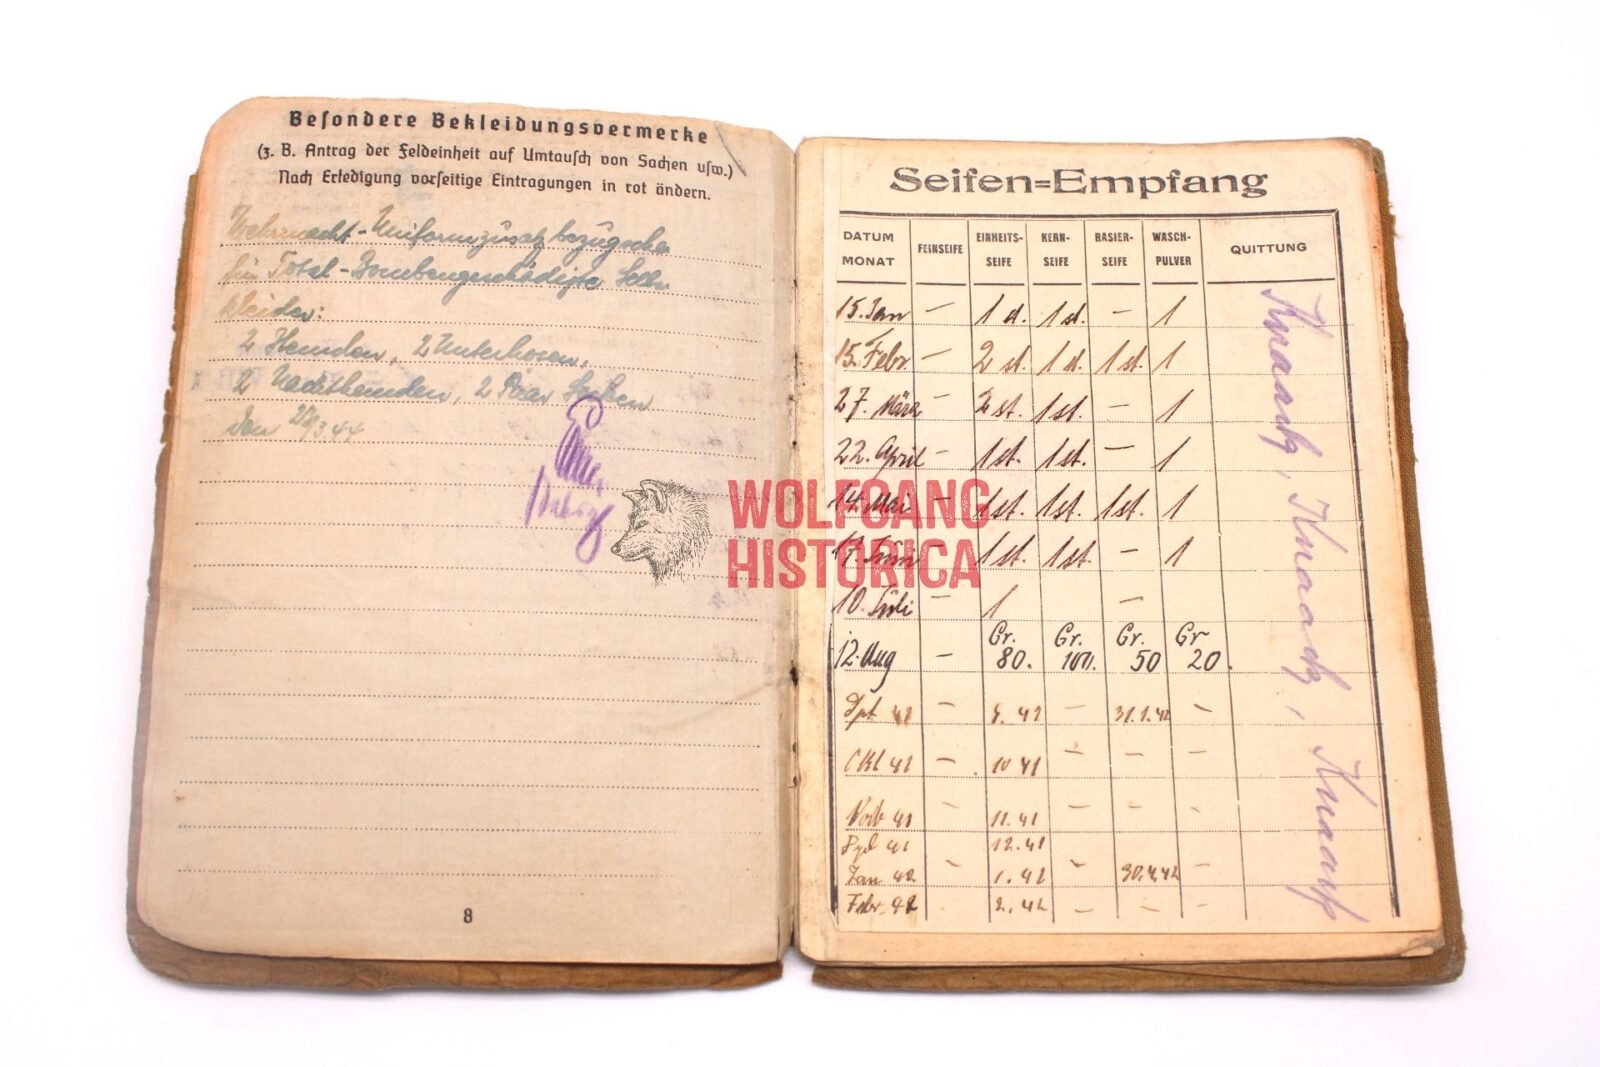 Besondere Bekleidungsvermerke
(z. B. Antrag der Feldeinheit auf Umtausch von Sachen usw.)
Nach Erledigung vorseitige Eintragungen in rot ändern.
Wehrmacht-Uniformzusatzbezugschein
für Total-Bombengeschädigte
2 Hemden, 2 Unterhosen,
2 Nachthemden, 2 Paar Socken
den 28/3.44
8
WOLFGANG
HISTORICA
Seifen=Empfang
DATUM MONAT FEINSEIFE EINHEITS-SEIFE KERN-SEIFE RASIER-SEIFE WASCH-PULVER QUITTUNG
15. Jan – 1 st. 1 st. – 1
15. Febr – 2 st. 1 st. 1 st. 1
27. März – 2 st. 1 st. – 1
22. April – 1 st. 1 st. – 1
14. Mai – 1 st. 1 st. 1 st. 1
17. Juni – 1 st. 1 st. – 1
10. Juli – 1 –
12. Aug – Gr. 80. Gr. 100. Gr. 50 Gr 20.
Spt 41 – 9. 41 – 31.1.42 –
Okt 41 – 10 41 – – –
Novb 41 – 11. 41 – – -
41 12.41
Jan 42 – 1. 42 – 30.4.42 –
Febr. 42 - 2. 42 – – –
Knaack, Knaack, Knaack